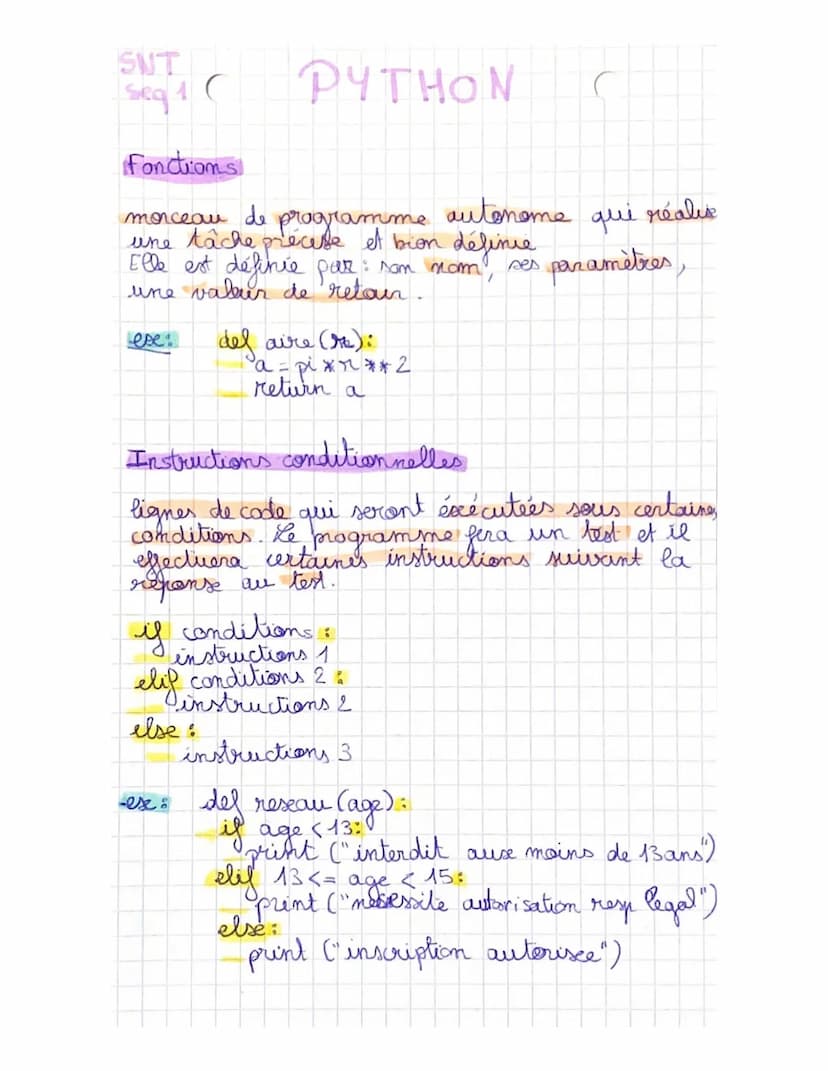 SNT
seq 1
PYTHON
Fonctions
morceau de programme autonome qui réalise
une tâche précise et bien définie
Elle est définie par : son nom, ses paramètres,
une valeur de retour.
ex : def aire (r) :
a = pi * r ** 2
return a
Instructions conditionnelles
lignes de code qui seront éxécutées sous certaines
conditions. Le programme fera un test et il
effectuera certaines instructions suivant la
réponse au test.
if conditions :
instructions 1
elif conditions 2 :
instructions 2
else :
instructions 3
-ex : def reseau (age) :
if age < 13 :
print ("interdit aux moins de 13 ans")
elif 13 <= age < 15 :
print ("nécessite autorisation resp legal")
else :
print ("inscription autorisee")